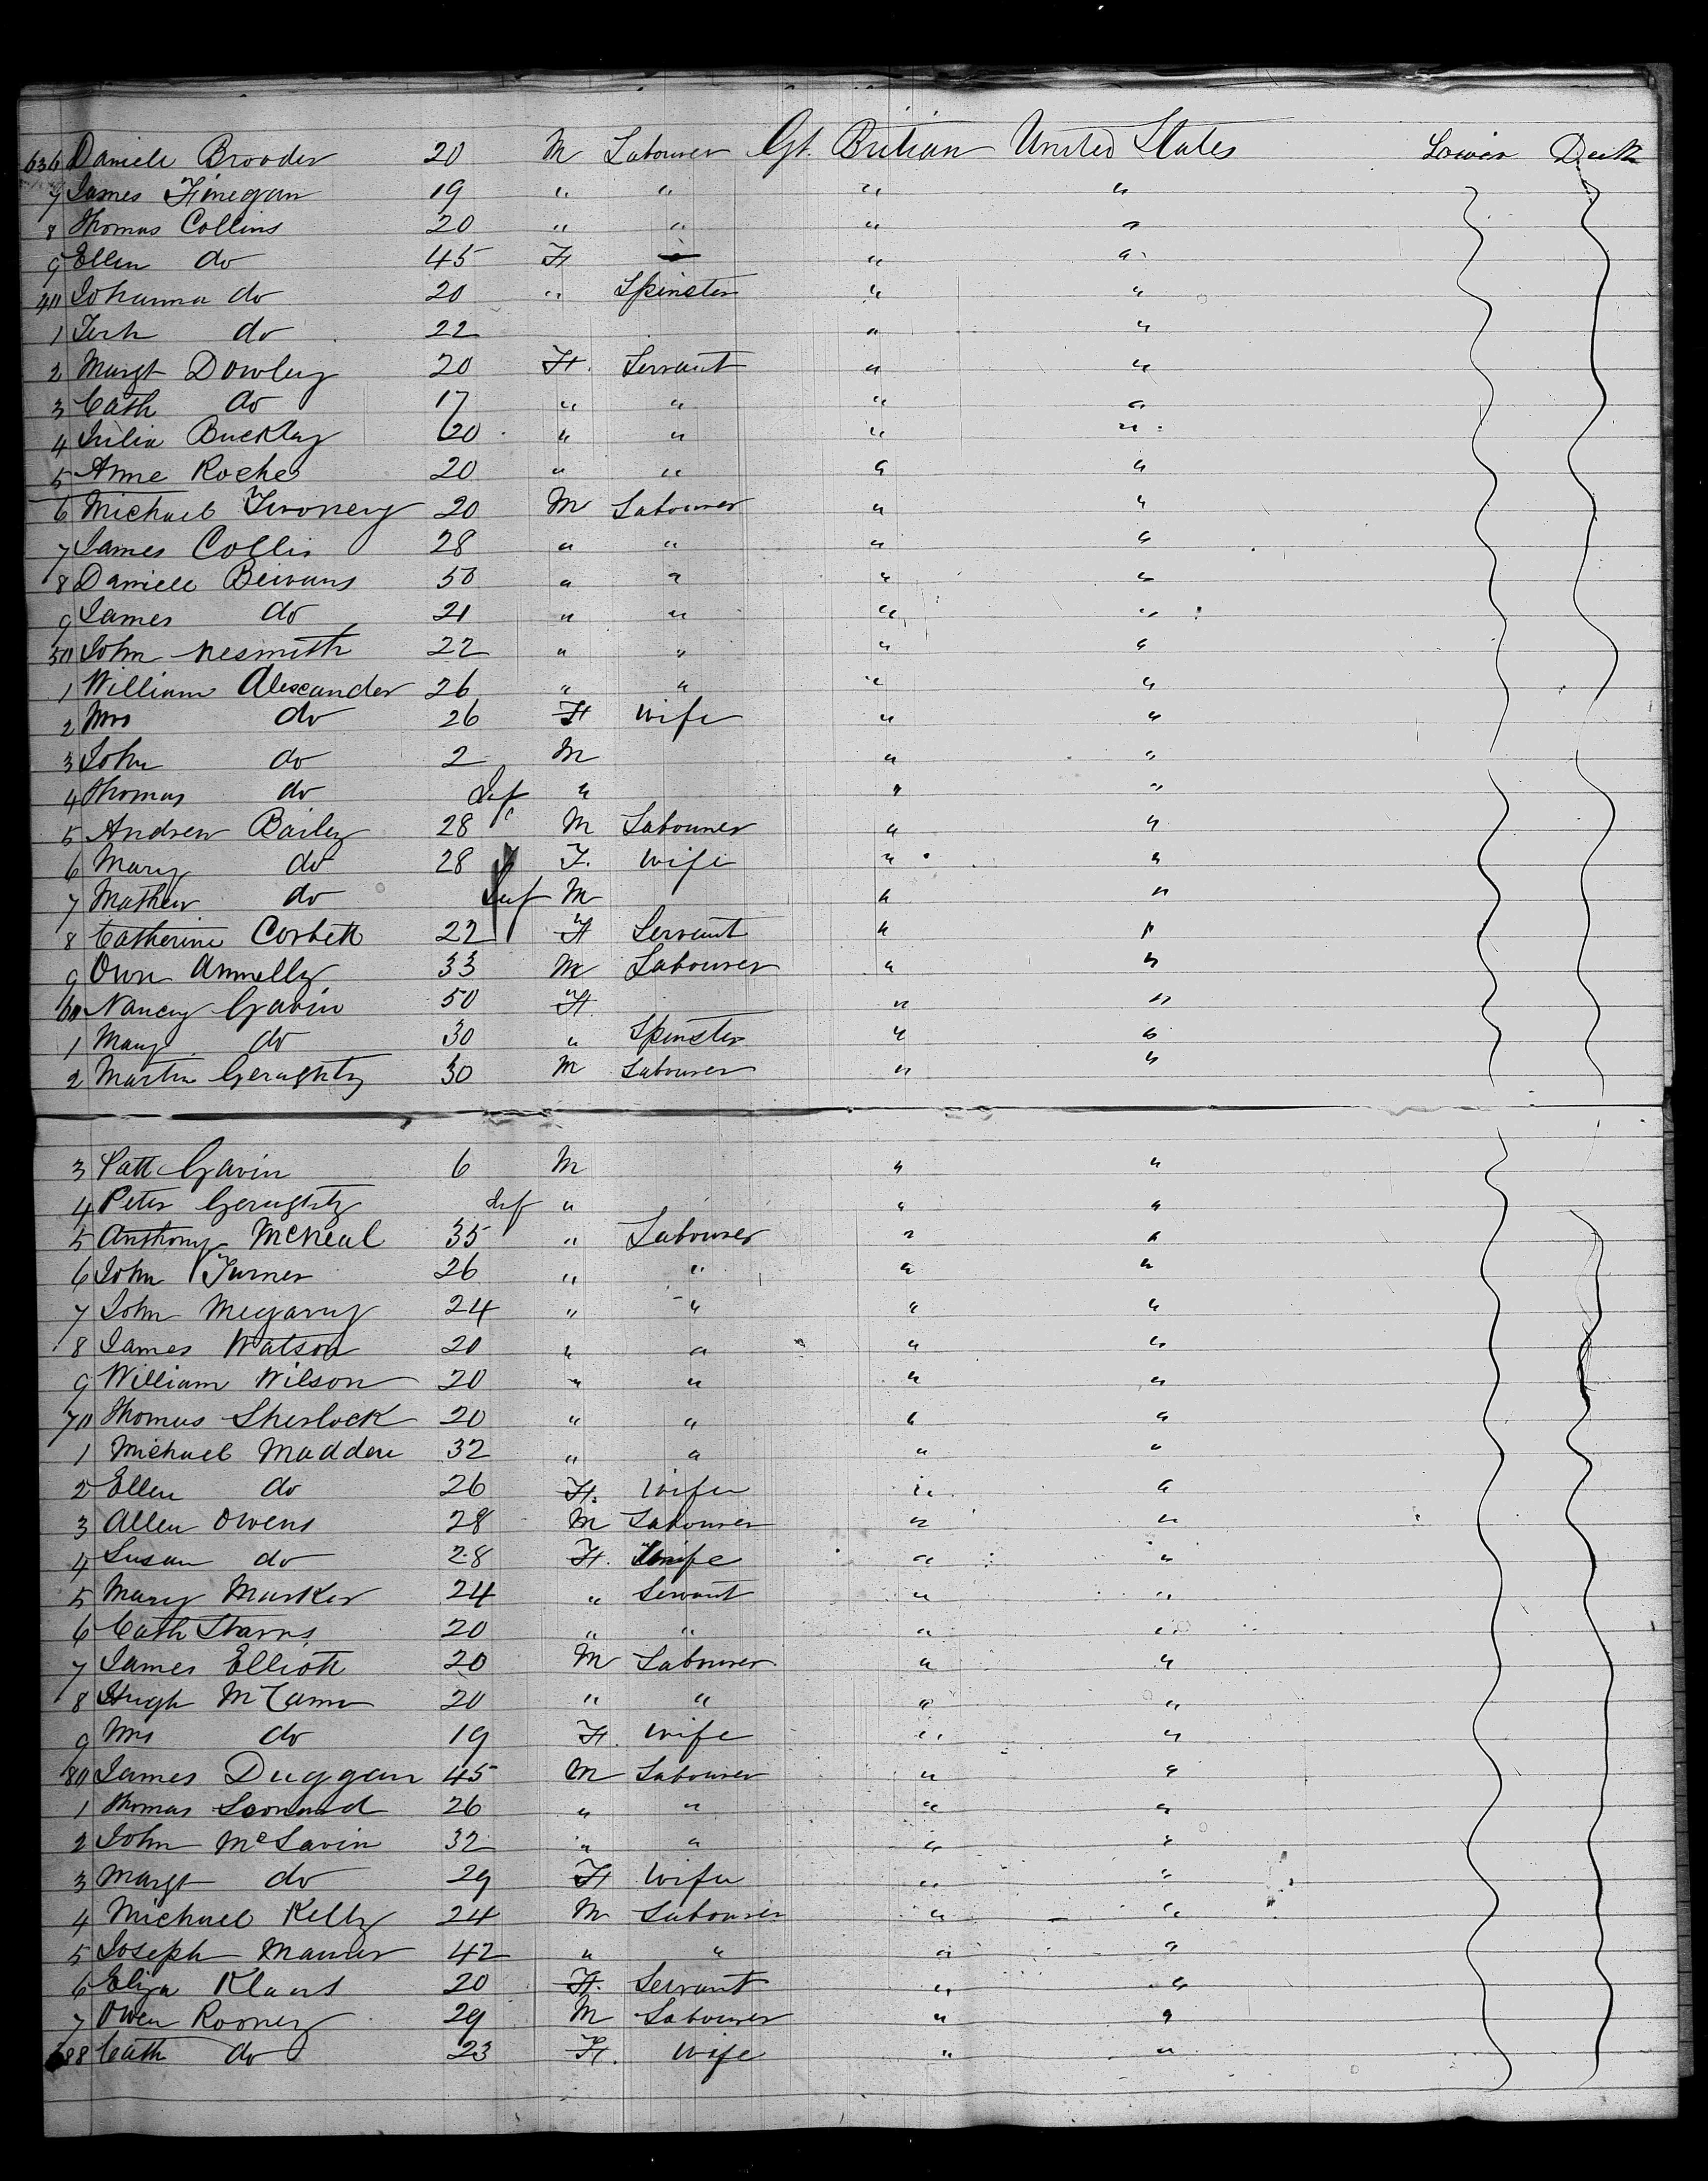 636 Daniell Broder 20 M Labourer Gt. Britian United States Lower Deck
7 James Finegan 19 " " " "
8 Thomas Collins 20 " " " "
9 Ellen do 45 F — " "
40 Johanna do 20 " Spinster " "
1 do 22 " "
2 Margt Dowley 20 F. Servant " "
3 Cath do 17 " " " "
4 Julia Buckley 20 " " " "
5 Anne Roche 20 " " " "
6 Michael Twomey 20 M Labourer " "
7 James Collis 28 " " " "
8 Daniell 50 " " " "
9 James do 21 " " " "
50 John Nesmith 22 " " " "
1 William Alexander 26 " " " "
2 Mrs do 26 F Wife " "
3 John do 2 M " "
4 Thomas do Inf " " "
5 Andrew Bailey 28 M Labourer " "
6 Mary do 28 F. Wife " "
7 Mathew do Inf M " "
8 Catherine Corbett 22 F Servant " "
9 Own Annelly 33 M Labourer " "
60 Nancy Gavin 50 F. " "
1 Mary do 30 " Spinster " "
2 Martin Geraghty 30 M Labourer " "
3 Patt Gavin 6 M " "
4 Peter Geraghty Inf " " "
5 Anthony McNeal 35 " Labourer " "
6 John Turner 26 " " " "
7 John Megarry 24 " " " "
8 James Watson 20 " " " "
9 William Wilson 20 " " " "
70 Thomas Sherlock 20 " " " "
1 Michael Madden 32 " " " "
2 Ellen do 26 F. Wife " "
3 Allen Owens 28 M Labourer " "
4 Susan do 28 F. Wife " "
5 Mary Marker 24 " Servant " "
6 Cath Starrs 20 " " " "
7 James Elliott 20 M Labourer " "
8 Hugh McCann 20 " " " "
9 Mrs do 19 F. Wife " "
80 James Duggan 45 M Labourer " "
1 Thomas Leonard 26 " " " "
2 John McLavin 32 " " " "
3 Margt do 29 F Wife " "
4 Michael Kelly 24 M Labourer " "
5 Joseph 42 " " " "
6 Eliza 20 F. Servant " "
7 Owen Rooney 29 M Labourer " "
688 Cath do 23 F. Wife " "